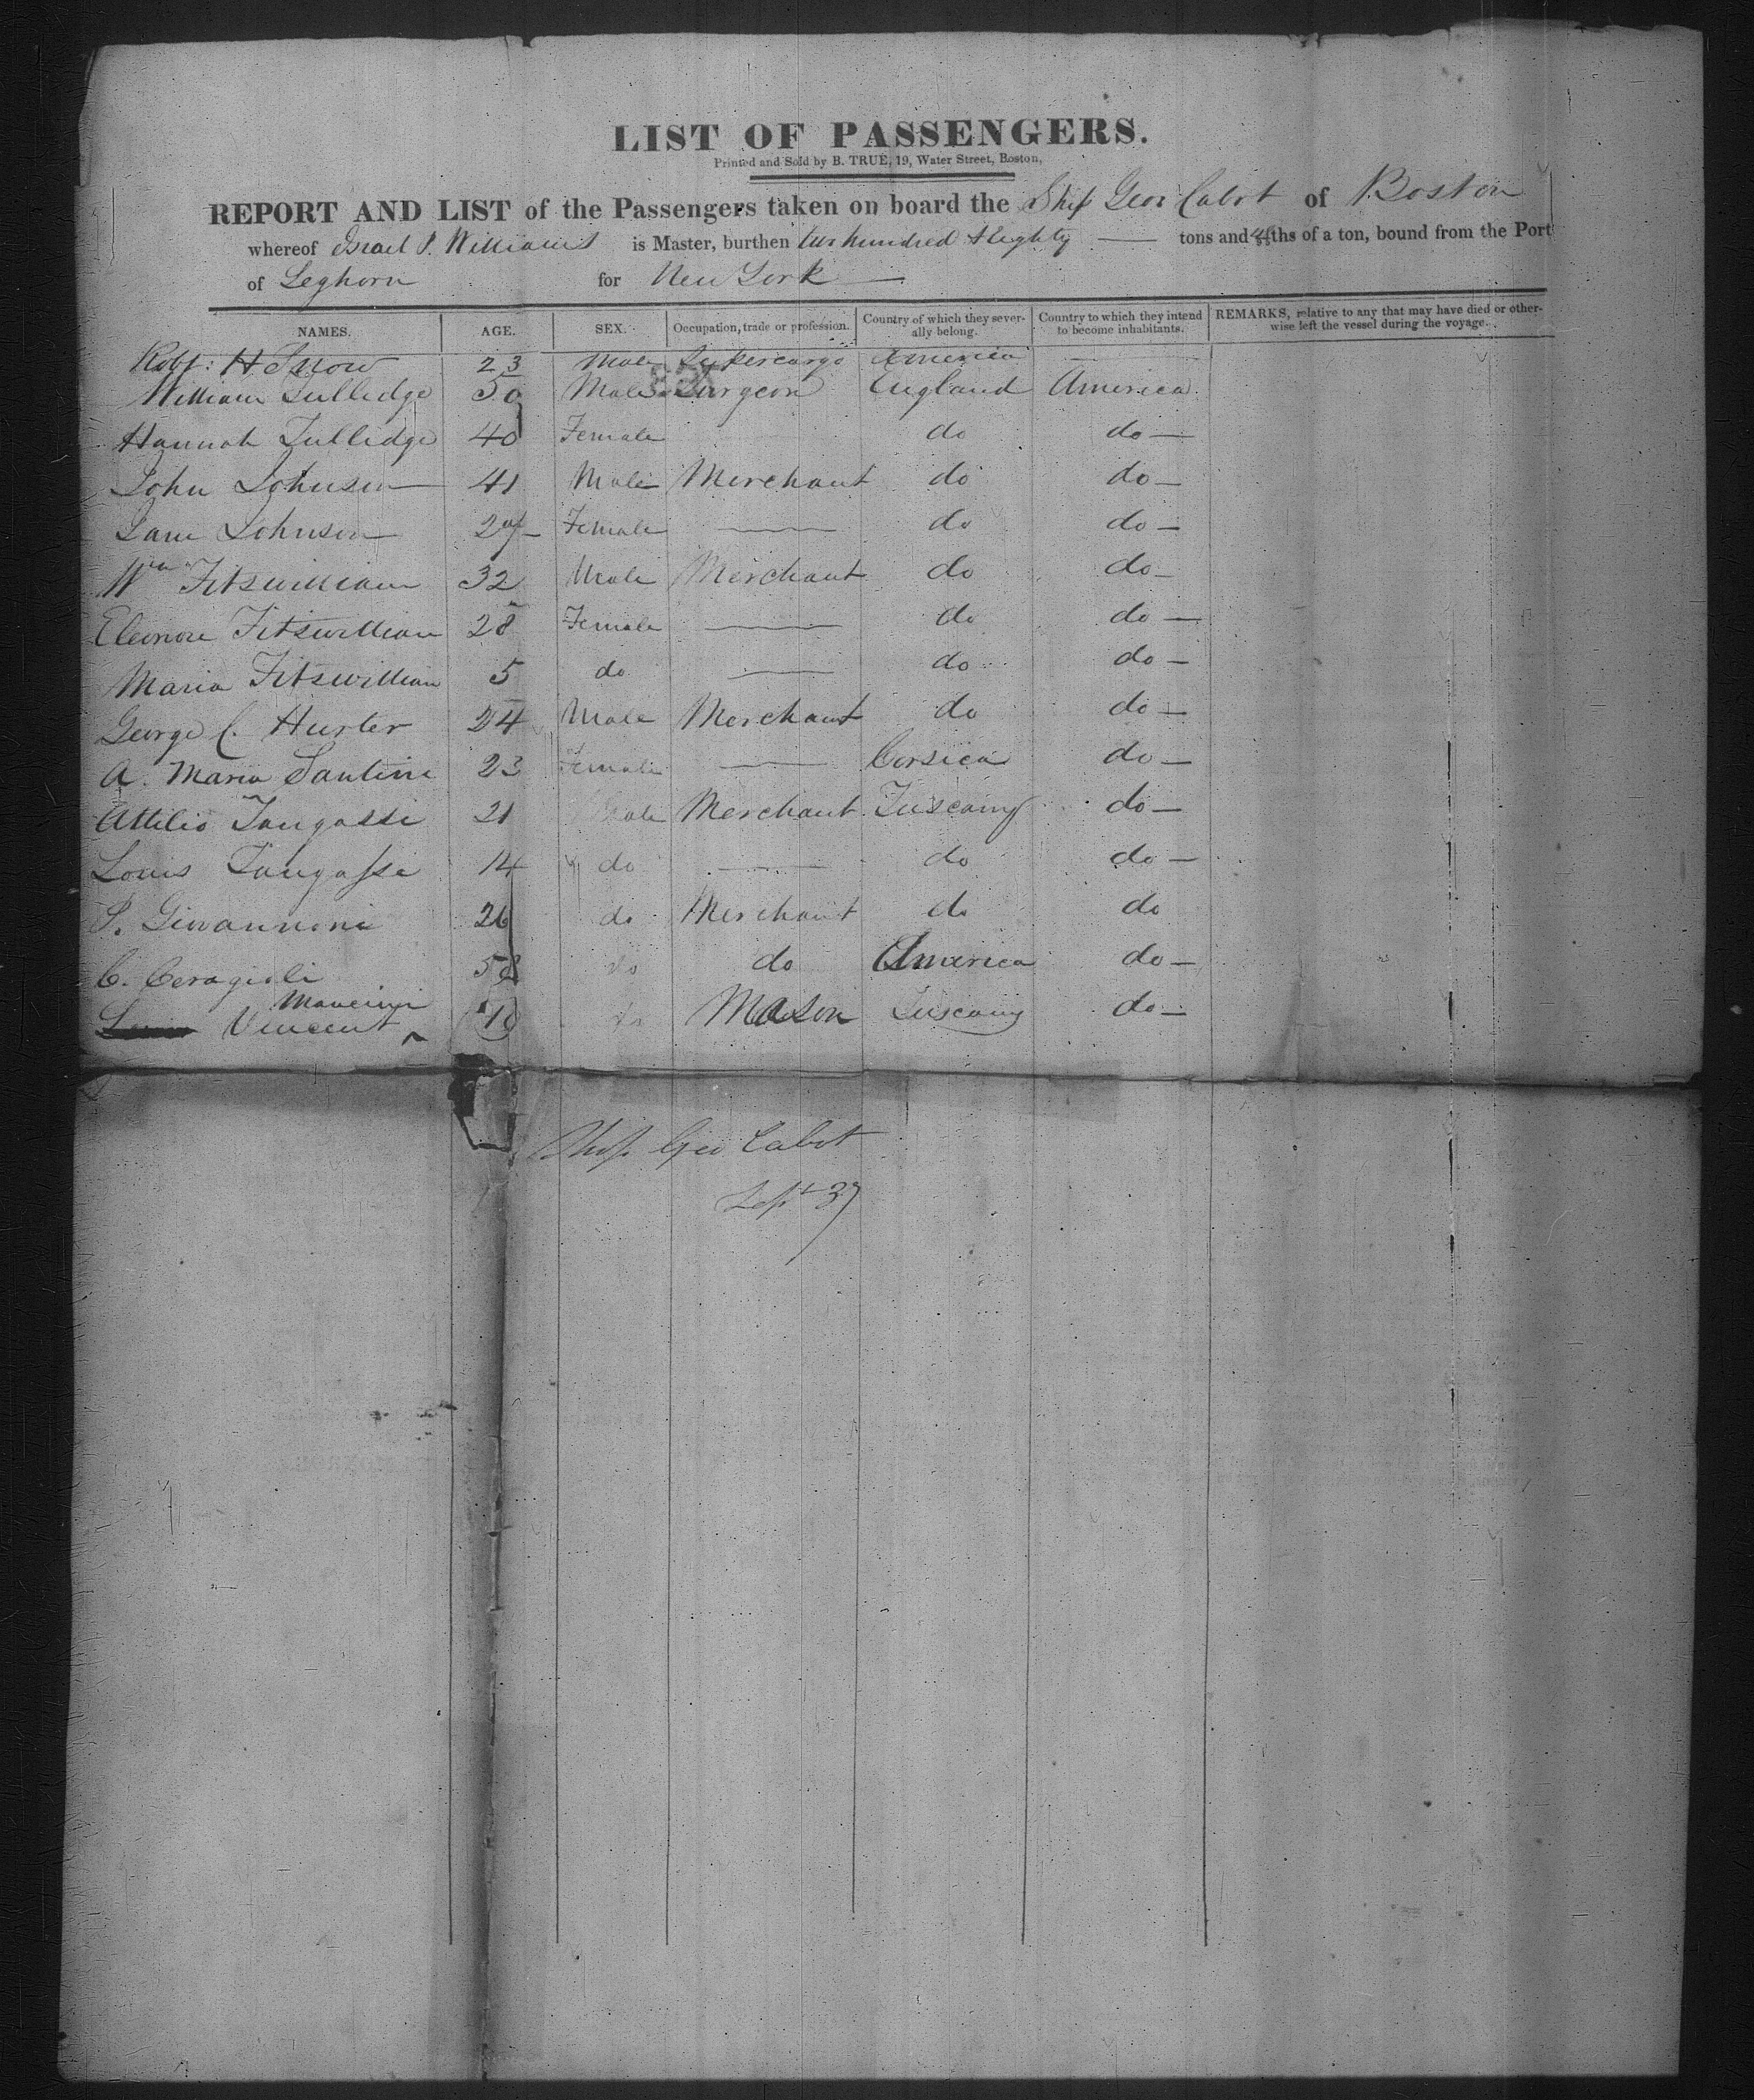 LIST OF PASSENGERS.
Printed and Sold by B. TRUE, 19, Water Street, Boston,
REPORT AND LIST of the Passengers taken on board the Ship Geo: Cabot of Boston
whereof Israel P. Williams is Master, burthen two hundred & Eighty — tons and ths of a ton, bound from the Port
of Leghorn for New York —
NAMES. AGE. SEX. Occupation, trade or profession. Country of which they severally belong. Country to which they intend to become inhabitants. REMARKS, relative to any that may have died or otherwise left the vessel during the voyage.
Robt: H Snow 23 Male Supercargo America —
William Tulledge 50 Male Surgeon England America
Hannah Tulledge 40 Female do do —
John Johnson 41 Male Merchant do do —
Jane Johnson Female — do do —
Wm Fitswilliam 32 Male Merchant do do —
Eleonore Fitswilliam 28 Female — do do —
Maria Fitswilliam 5 do — do do —
George C. Hurter 24 Male Merchant do do —
A. Maria Santini 23 Female — Corsica do —
Attilio Tangassi 21 Male Merchant Tuscany do —
Louis Tangassi 14 do — do do —
P. Giovannoni 26 do Merchant do do
C. Ceragioli 58 do do America do —
Vincent Mancini do Mason Tuscany do —
Ship Geo Cabot
Sept 37